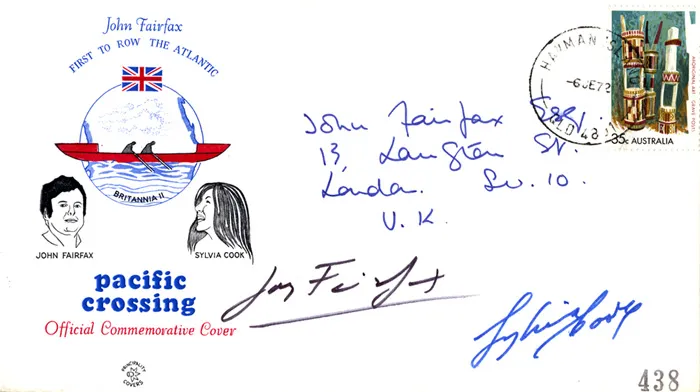 John Fairfax
FIRST TO ROW THE ATLANTIC
BRITANNIA II
JOHN FAIRFAX
SYLVIA COOK
pacific
crossing
Official Commemorative Cover
PRINCIPALITY
COVERS
John Fairfax Esq.
13 Langton St.
London. S.W. 10.
U.K.
HAYMAN IS
-6JE72
QLD 48
ABORIGINAL ART GRAVE POSTS
35c AUSTRALIA
John Fairfax
Sylvia Cook
438